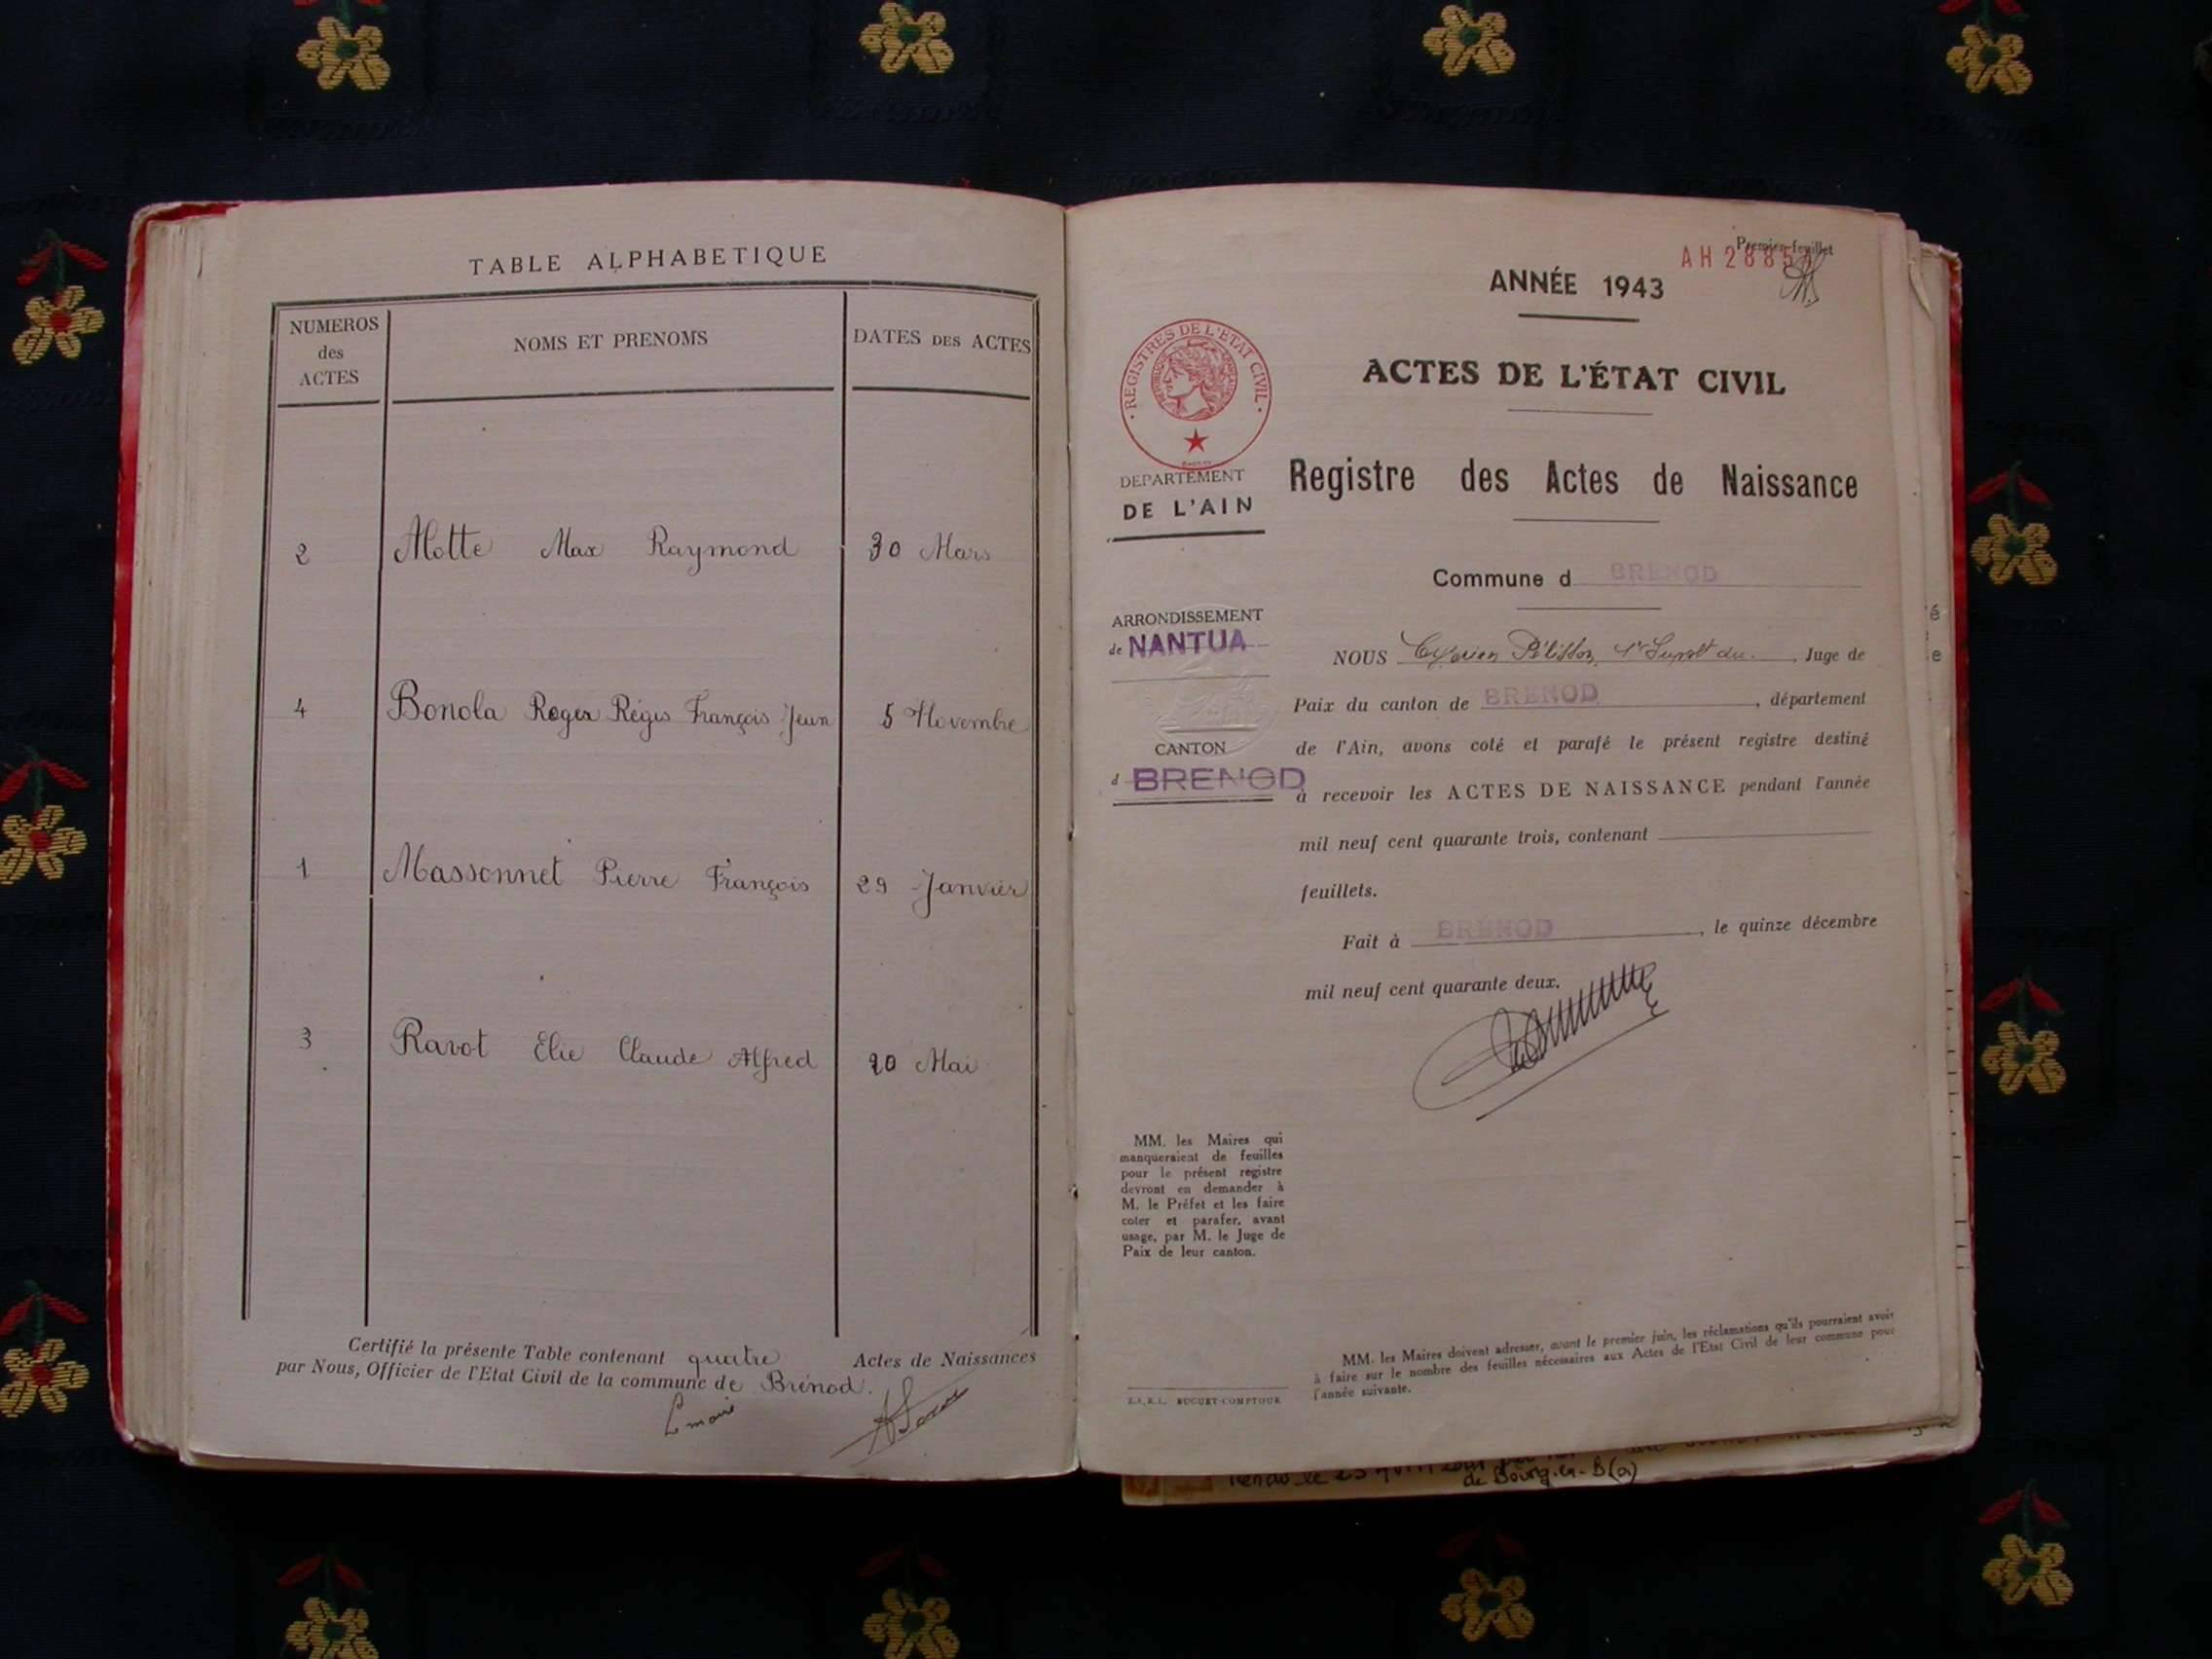 TABLE ALPHABETIQUE
NUMEROS
des
ACTES
NOMS ET PRENOMS
DATES DES ACTES
2 Motte Max Raymond 30 Mars
4 Bonola Roger Régis François Jean 5 Novembre
1 Massonnet Pierre François 29 Janvier
3 Ravot Elie Claude Alfred 20 Mai
Certifié la présente Table contenant quatre Actes de Naissances
par Nous, Officier de l'Etat Civil de la commune de Brénod.
Le maire
Premier feuillet
AH 2885
ANNÉE 1943
ACTES DE L'ÉTAT CIVIL
Registre des Actes de Naissance
REGISTRES DE L'ETAT CIVIL
DEPARTEMENT
DE L'AIN
Commune d BRENOD
ARRONDISSEMENT
de NANTUA
CANTON
d BRENOD
NOUS Pélisson, Juge de
Paix du canton de BRENOD, département
de l'Ain, avons coté et parafé le présent registre destiné
à recevoir les ACTES DE NAISSANCE pendant l'année
mil neuf cent quarante trois, contenant
feuillets.
Fait à BRENOD, le quinze décembre
mil neuf cent quarante deux.
MM. les Maires qui
manqueraient de feuilles
pour le présent registre
devront en demander à
M. le Préfet et les faire
coter et parafer, avant
usage, par M. le Juge de
Paix de leur canton.
MM. les Maires doivent adresser, avant le premier juin, les réclamations qu'ils pourraient avoir
à faire sur le nombre des feuilles nécessaires aux Actes de l'Etat Civil de leur commune pour
l'année suivante.
BUGUET-COMPTOUR
de Bourg-en-B(a)